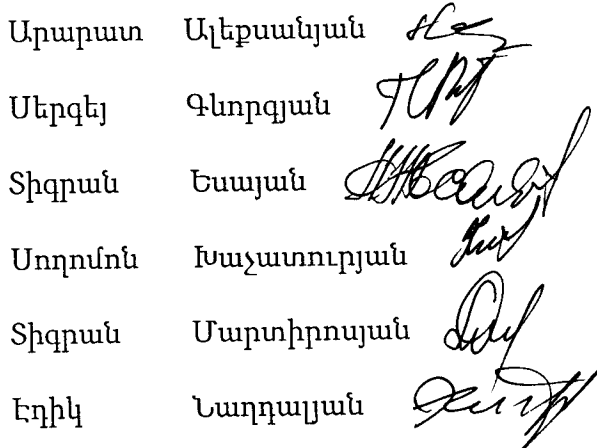 Արարատ Ալեքսանյան
Սերգեյ Գևորգյան
Տիգրան Եսայան
Սողոմոն Խաչատուրյան
Տիգրան Մարտիրոսյան
Էդիկ Նաղդալյան